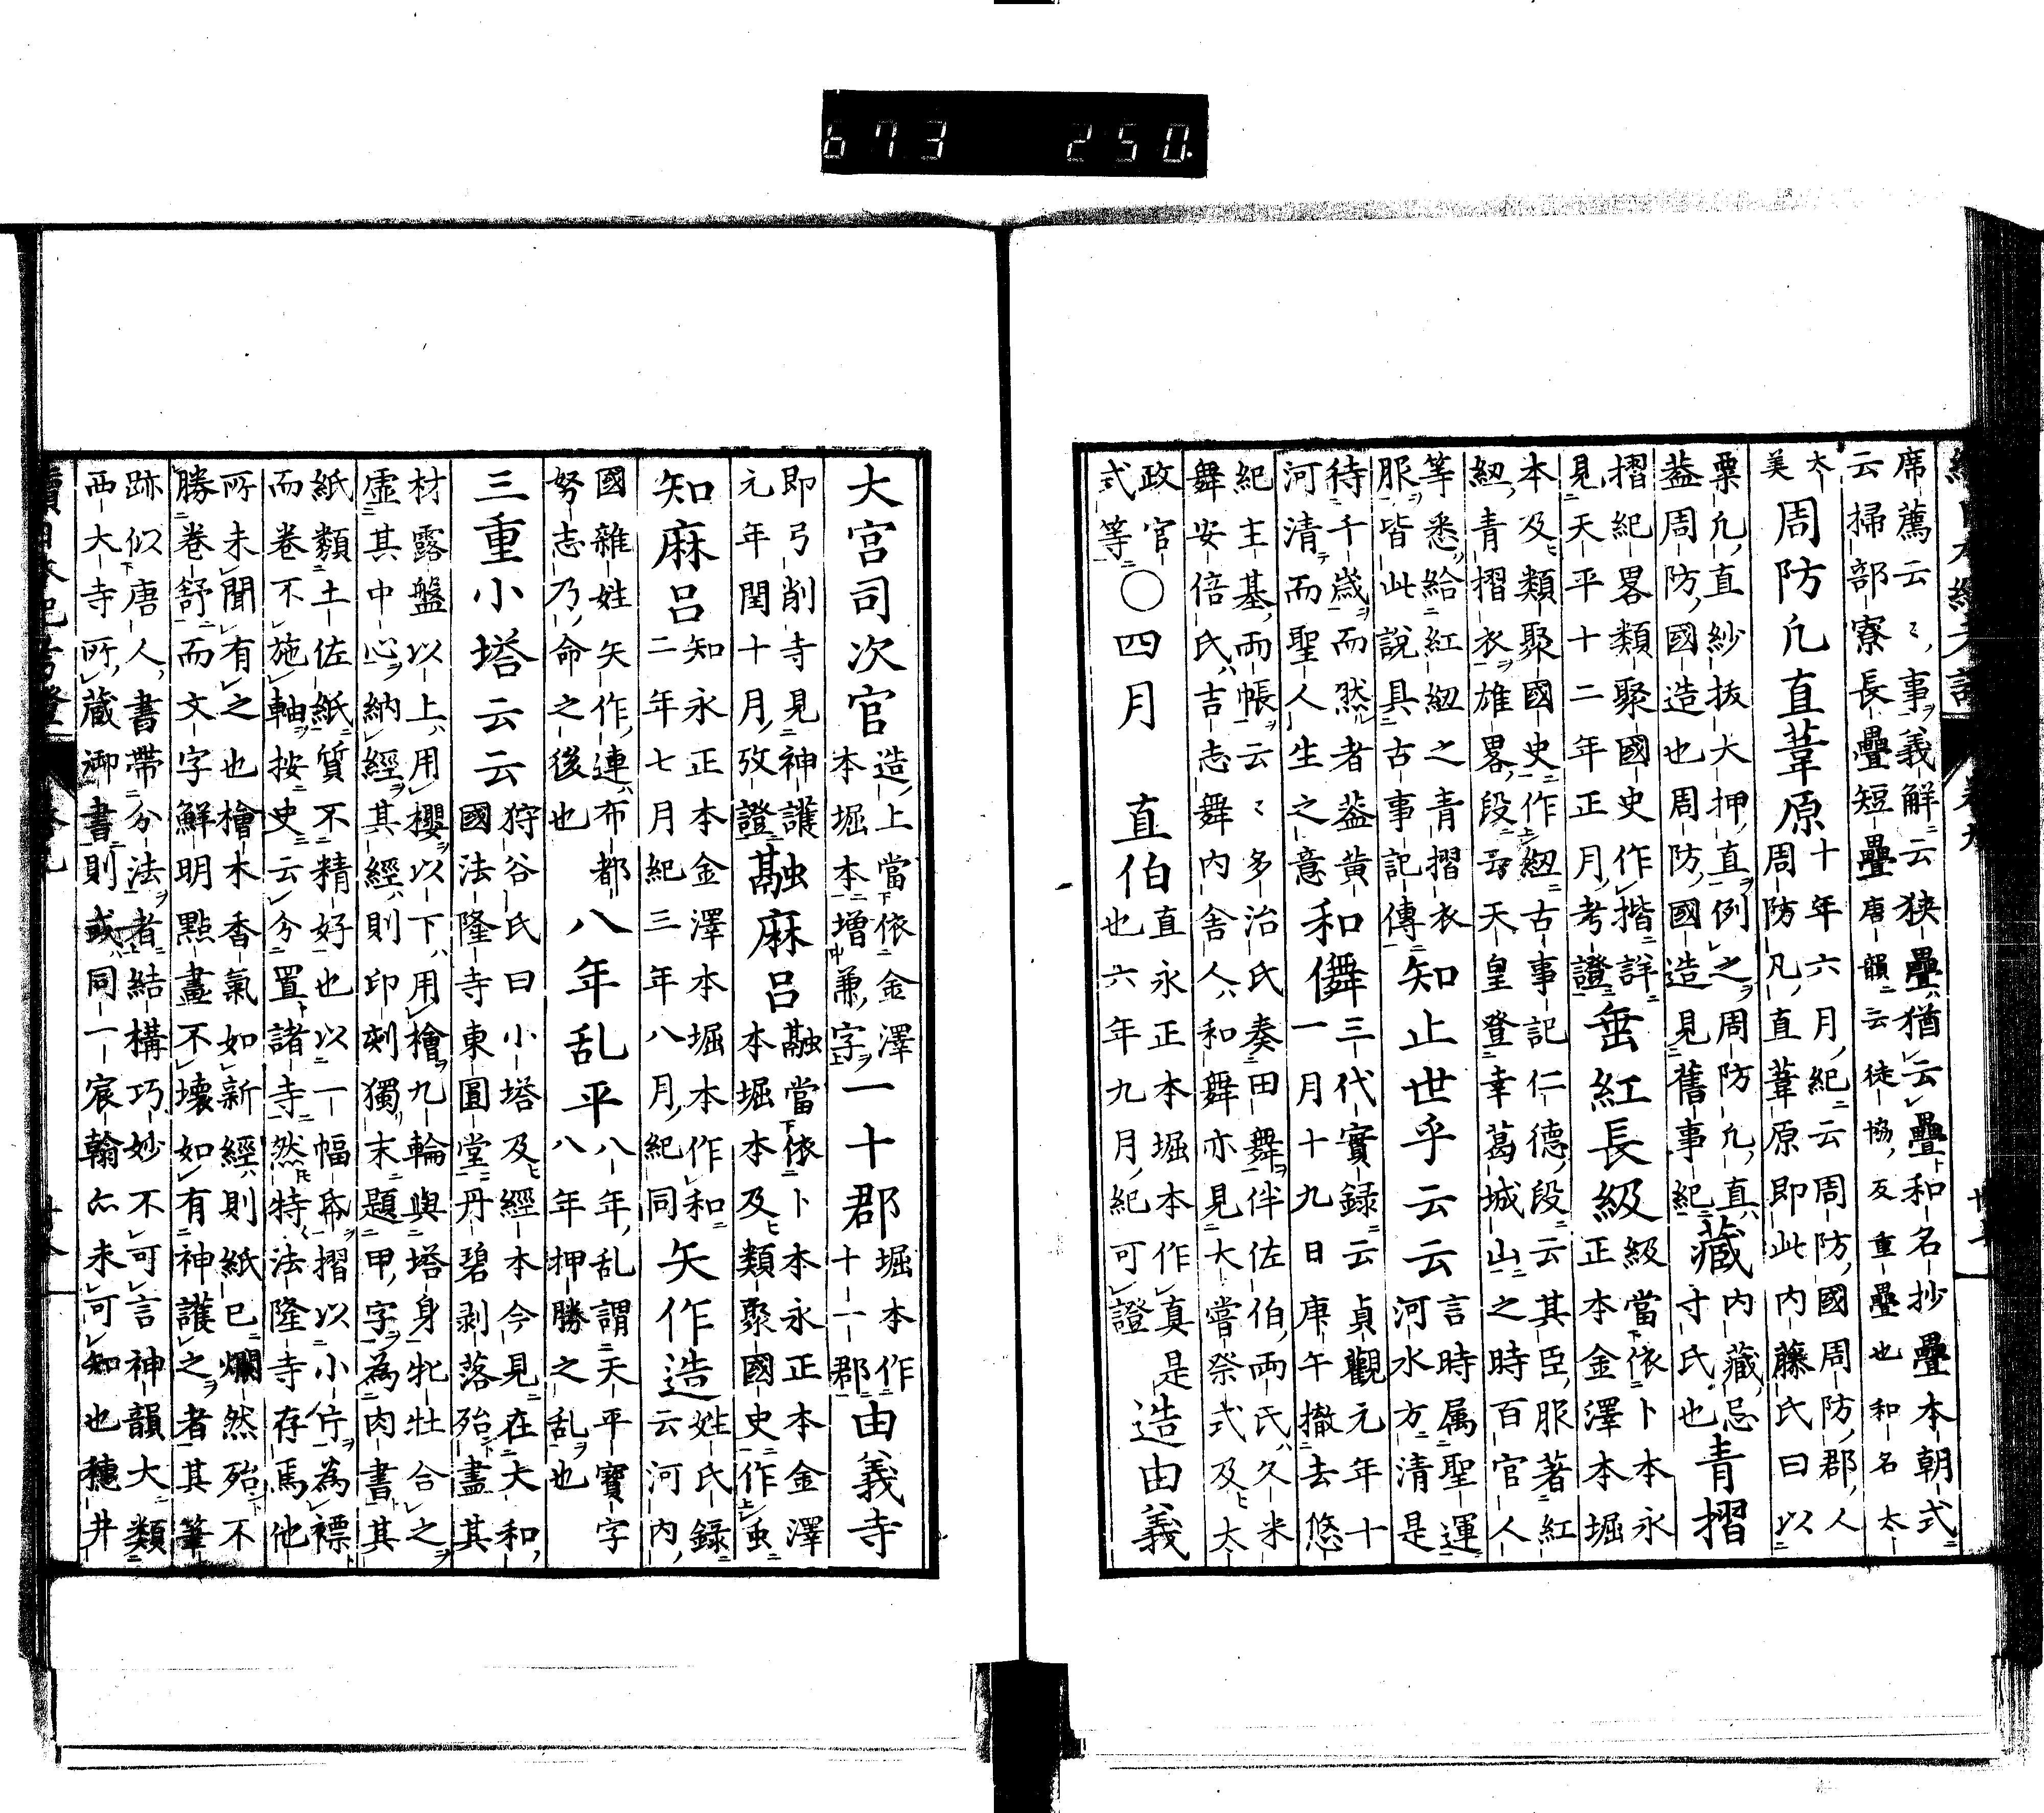 席薦云〻事義解云狹疊猶云疊和名抄疊本朝式
云掃部寮長疊短疊唐韻云徒協反重疊也和名太
太
美
周防凢直葦原
十年六月紀云周防國周防郡人
周防凡直葦原即此内藤氏曰以
粟凢直紗抜大押直例之周防凢直
葢周防國造也周防國造見舊事紀
藏
内藏忌
寸氏也
青摺
摺紀畧類聚國史作揩詳
見天平十二年正月考證
垂紅長級
級當依卜本永
正本金澤本堀
本及類聚國史作紐古事記仁德段云其臣服著紅
紐青摺衣雄畧段云天皇登幸葛城山之時百官人
等悉給紅紐之青摺衣
服皆此說具古事記傳
知止世乎云云
言時属聖運
河水方清是
待千歳而然者葢黄
河清而聖人生之意
和儛
三代實録云貞觀元年十
一月十九日庚午撤去悠
紀主基兩帳云〻多治氏奏田舞伴佐伯兩氏久米
舞安倍氏吉志舞内舎人和舞亦見大嘗祭式及太
政官
式等
〇四月 直伯
直永正本堀本作真是
也六年九月紀可證
造由義
大宮司次官
造上當依金澤
本堀本增兼字
一十郡
堀本作
十一郡
由義寺
即弓削寺見神護
元年閏十月攷證
䶎麻呂
䶎當依卜本永正本金澤
本堀本及類聚國史作虫
知麻呂
知永正本金澤本堀本作和
二年七月紀三年八月紀同
矢作造
姓氏録
云河内
國雜姓矢作連布都
努志乃命之後也
八年乱平
八年乱謂天平寶字
八年押勝之乱也
三重小塔云云
狩谷氏曰小塔及經本今見在大和
國法隆寺東圓堂丹碧剥落殆盡其
材露盤以上用櫻以下用檜九輪與塔身牝牡合之
虚其中心納經其經則印刻獨末題甲字為肉書其
紙類土佐紙質不精好也以一幅帋摺以小片為褾
而卷不施軸按史云分置諸寺然特法隆寺存焉他
所未聞有之也檜木香氣如新經則紙已爛然殆不
勝卷舒而文字鮮明點畫不壞如有神護之者其筆
跡似唐人書帶分法者結構巧妙不可言神韻大類
西大寺所藏御書則或同一宸翰亦未可知也穗井